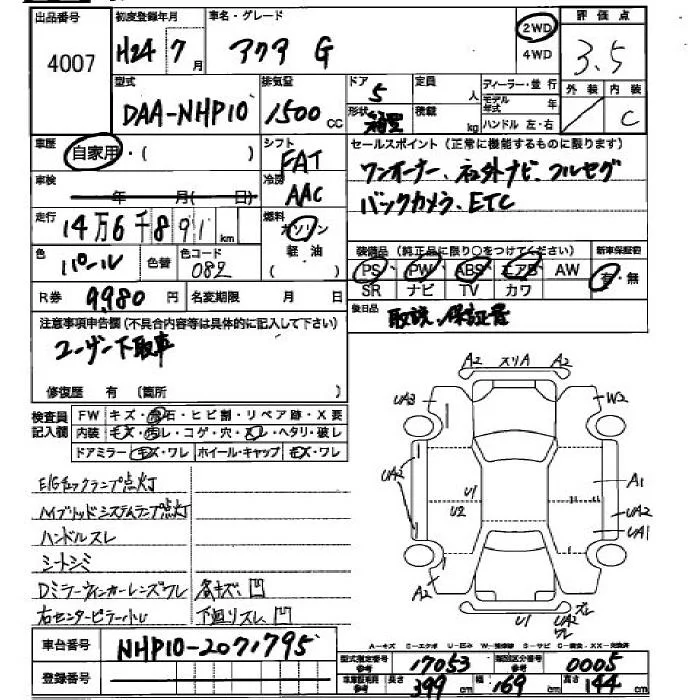 出品番号 4007
初度登録年月 H24 7月
車名・グレード アクア G
2WD 4WD
評価点 3.5
外装 内装 C
型式 DAA-NHP10
排気量 1500 cc
ドア 5
形状
定員 人
積載 kg
ディーラー・並行
モデル年式 年
ハンドル 左・右
車歴 自家用・( )
シフト FAT
セールスポイント (正常に機能するものに限ります)
ワンオーナー、社外ナビ、フルセグ
バックカメラ、ETC
車検 年 月( 日)
冷房 AAC
走行 14万6千891km
燃料 ガソリン 軽油 ( )
色 パール 色替 色コード 082
装備品 (純正品に限り○をつけてください)
PS PW ABS エアB AW
SR ナビ TV カワ
新車保証書 有・無
R券 9980円 名変期限 月 日
後日品 取説、保証書
注意事項申告欄 (不具合内容等は具体的に記入して下さい)
ユーザー下取車
修復歴 有 (箇所 )
検査員記入欄
FW キズ・飛石・ヒビ割・リペア跡・X要
内装 キズ・汚レ・コゲ・穴・スレ・ヘタリ・破レ
ドアミラー キズ・ワレ ホイール・キャップ キズ・ワレ
E/Gチェックランプ点灯
ハイブリッドシステムランプ点灯
ハンドルスレ
シートシミ
Dミラーウィンカーレンズワレ 各キズ凹
右センターピラー小U 下回リスレ、凹
A2 スリA A2
UA3 W2
UA2 A1
U1 UA2
U2 UA1
A2
U1 UA2 ズレ
ワレ
車台番号 NHP10-2071795
登録番号
型式指定番号 参考 17053
類別区分番号 参考 0005
車庫証明用 参考 長さ 399 cm 幅 169 cm 高さ 144 cm